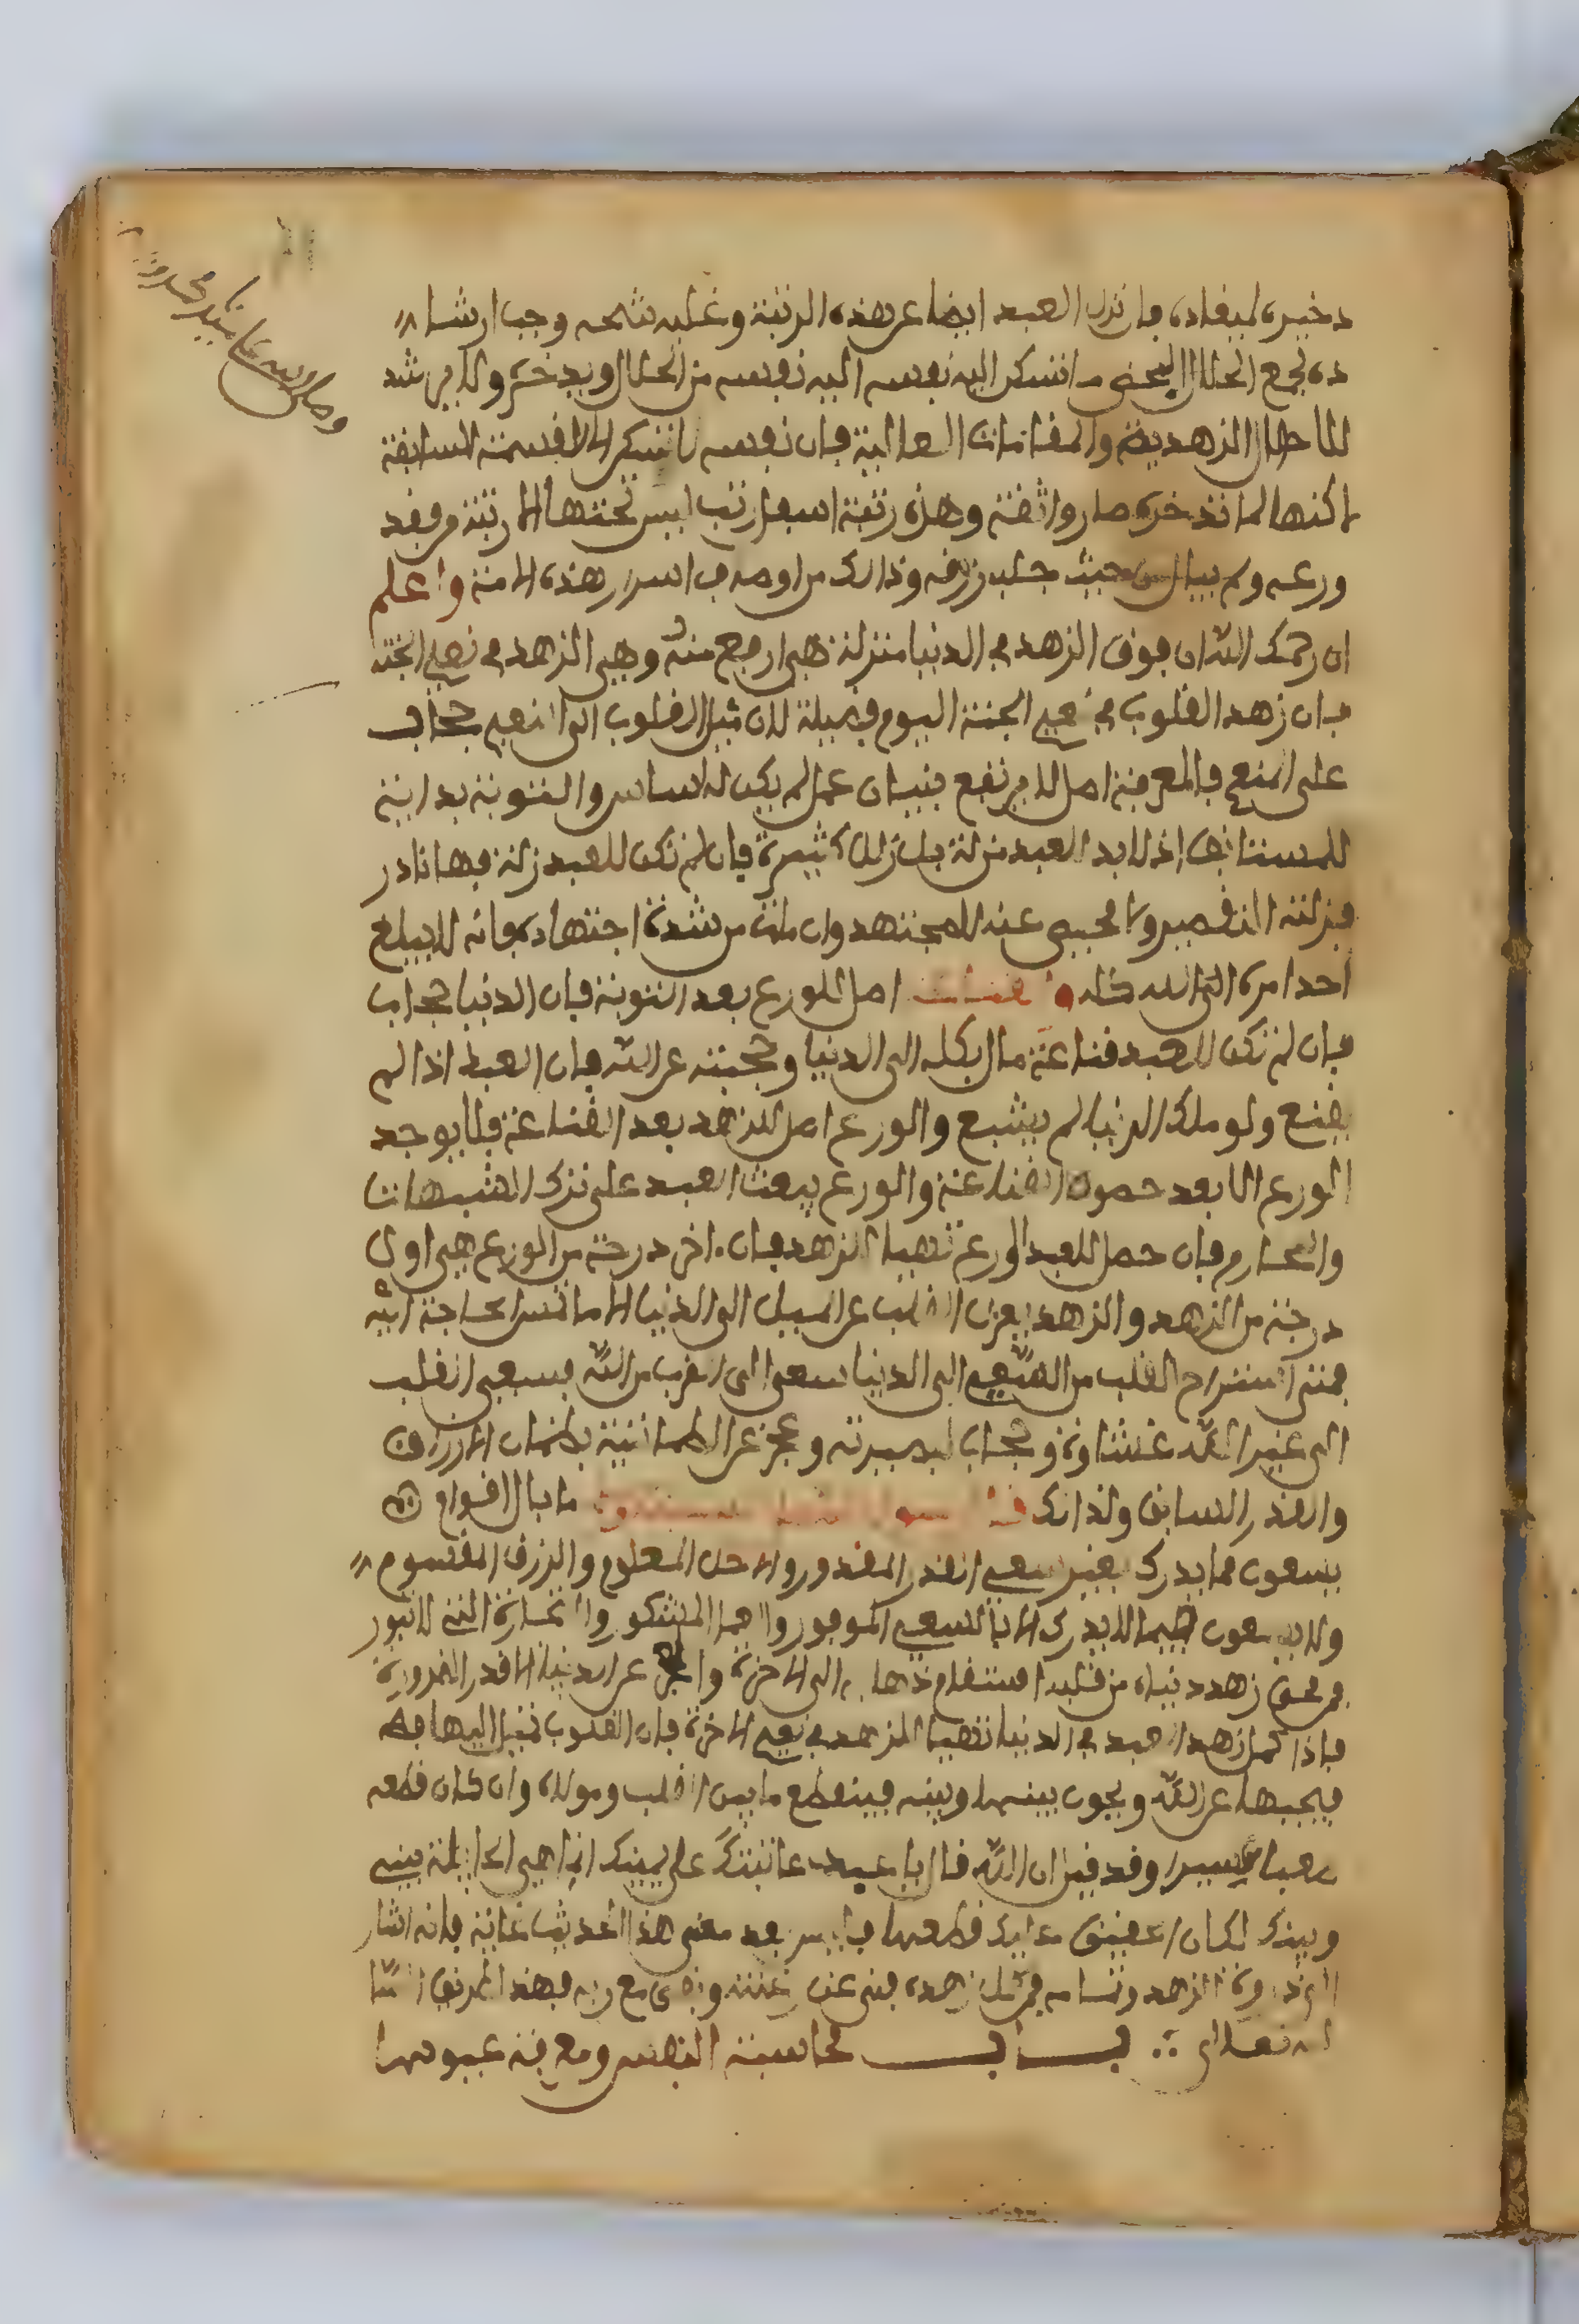 ذخيرة لميعاده فان نزل العبد ايضا عن هذه الرتبة وغلبه شحه وجب ارشا
ده لجمع الحلال المحض ما تسكن اليه نفسه من الحلال ويدخره ولا يرشد
للاحوال الزهدية والمقامات العالية فان نفسه لا تسكن الا لقسمته السابقة
لاكنها لما تدخره صار واثقة وهذه رتبة اسفل رتب ليس تحتها الا رتبة من فقد
ورعه ولم يبال من حيث جلب رزقه وذالك من اوصاف اسرار هذه الامة واعلم
ان رحمك الله ان فوق الزهد في الدنيا منزلة هي ارفع منه وهي الزهد في نعيم الجنة
فان زهد القلوب في نعيم الجنة اليوم فضيلة لان ميل القلوب الى النعيم حجاب
على المنعم فالمعرفة اصل لا يرتفع بنيان عمل لم يكن له اساس والتوبة بداية
للمستانف اذ لا بد للعبد من زلة بل زلل كثيرة فان لم تكن للعبد زلة فهانا نادر
فزلته التقصير ولا محيص عنه للمجتهد وان مات من شدة اجتهاده فانه لا يبلغ
احد امره الى الله كله والقناعة اصل للورع بعد التوبة فان الدنيا حجاب
فان لم تكن للعبد قناعة مال بكله الى الدنيا وحجبته عن الله فان العبد اذا لم
يقنع ولو ملك الدنيا لم يشبع والورع اصل للزهد بعد القناعة فلا يوجد
الورع الا بعد حصول القناعة والورع يبعث العبد على ترك الشبهات
والمحارم فان حصل للعبد الورع تهيا للزهد فان اخر درجة من الورع هي اول
درجة من الزهد والزهد يعزل القلب عن الميل الى الدنيا الا ما تمس الحاجة اليه
فمتى استراح القلب من السعي الى الدنيا سعى الى القرب من الله فسعي القلب
الى غير الله غشاوة وحجاب لبصيرته وعجز عن الطمانينة بضمان الارزاق
والقدر السابق ولذالك قال رسول الله صلى الله عليه وسلم ما بال اقوام
يسعون فما يدرك بغير سعي القدر المقدور والاجل المعلوم والرزق المقسوم
ولا يسعون فيما لا يدرك الا بالسعي الموفور والعمل المشكور والتجارة التي لا تبور
فمن محق زهد دنياه من قلبه استقام ذهابه الى الاخرة واعرض عن الدنيا الا قدر الضرورة
فاذا كمل زهد العبد في الدنيا تهيا للزهد في نعيم الاخرة فان القلوب تميل اليها فيه
فيحجبها عن الله ويحول بينها وبينه فينقطع ما بين القلب ومولاه وان كان قطعه
يسيرا وقد قيل ان الله قال يا عبد عاتبتك على يمينك انها هي الحايلة بيني
وبينك لكان الحقيق عليك قطعها فليس بعد معنى هذا الحديث غاية فانه اشار
الى ذروة الزهد وتمامه فمن كمل زهده فني عن رغبته وبقي مع ربه فهذا طريق ان شا
الله تعالى بــاب محاسبة النفس ومعرفة عيوبها